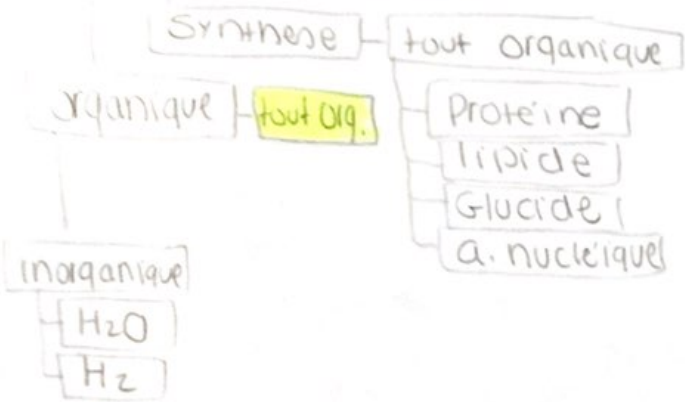 Synthese
tout organique
organique
tout org.
Protéine
lipide
Glucide
a. nucléique
inorganique
H2O
H2